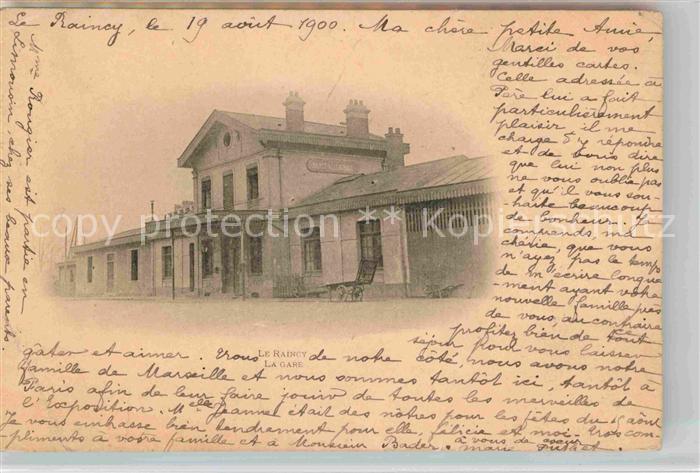 Le Raincy, le 19 août 1900. Ma chère petite Amie,
Merci de vos
gentilles cartes.
Celle adressée à
Père lui a fait
particulièrement
plaisir, il me
charge d'y répondre
et de vous dire
que lui non plus
ne vous oublie pas
et qu'il vous sou-
haite beaucoup
de bonheur. Je
comprends, ma
chérie, que vous
n'ayez pas le temps
de m'écrire longue-
ment ayant votre
nouvelle famille près
de vous, au contraire
profitez bien de tout
séjour pour vous laisser
gâter et aimer. Nous de notre côté, nous avons notre
famille de Marseille et nous sommes tantôt ici, tantôt à
Paris afin de leur faire jouir de toutes les merveilles de
l'Exposition. Melle Jeanne était des nôtres pour les fêtes du 15 août
Je vous embrasse bien tendrement pour elle, Félicie et moi. Nos com-
pliments à votre famille et à Monsieur Bader. à vous de coeur
Marie
Mme Rougier est partie en
Limousin, chez ses beaux parents.
LE RAINCY
LA GARE
copy protection ** copy protection **